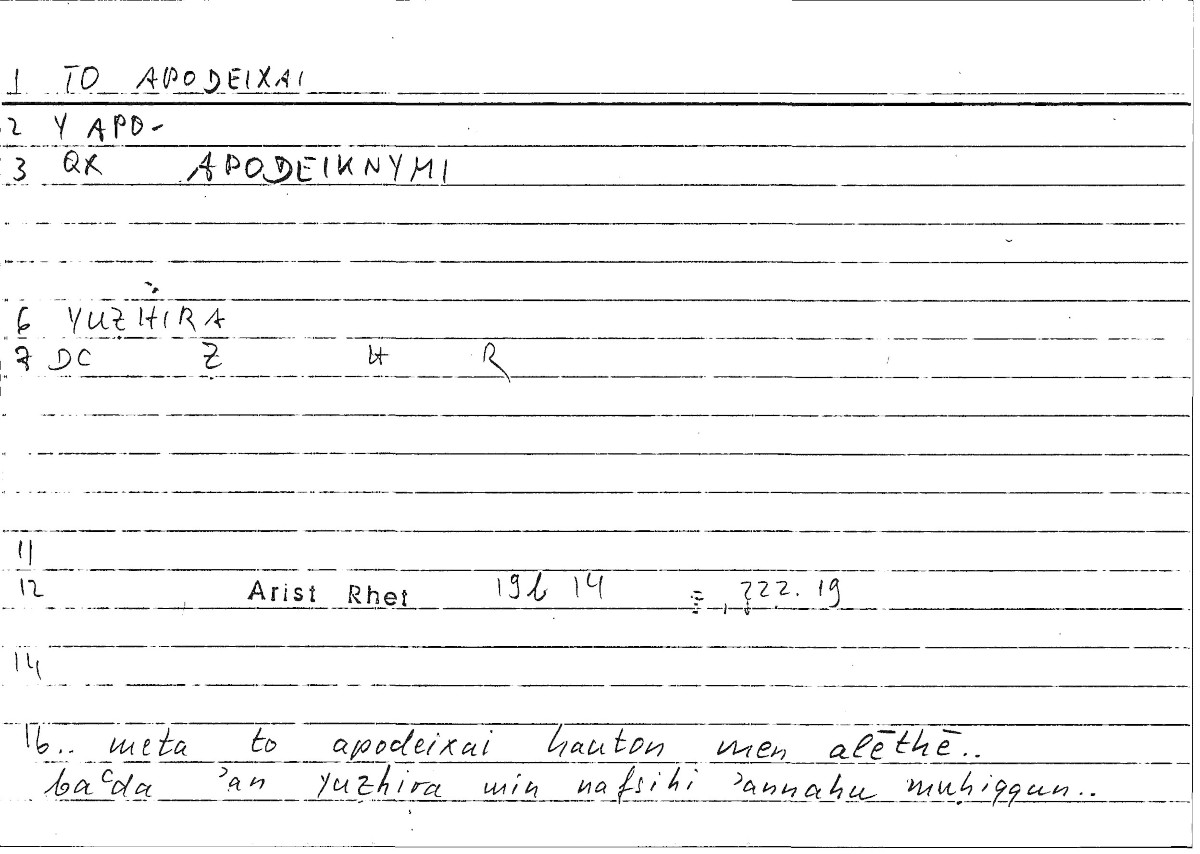 1 TO APODEIXAI
2 Y APO-
3 QX APODEIKNYMI
6 YUẒHIRA
7 DC Ẓ H R
11
12 Arist Rhet 19b 14 = , 222.19
14
16.. meta to apodeixai hauton men alēthē..
baᶜda ʾan yuzhira min nafsihi ʾannahu muḥiqqun..